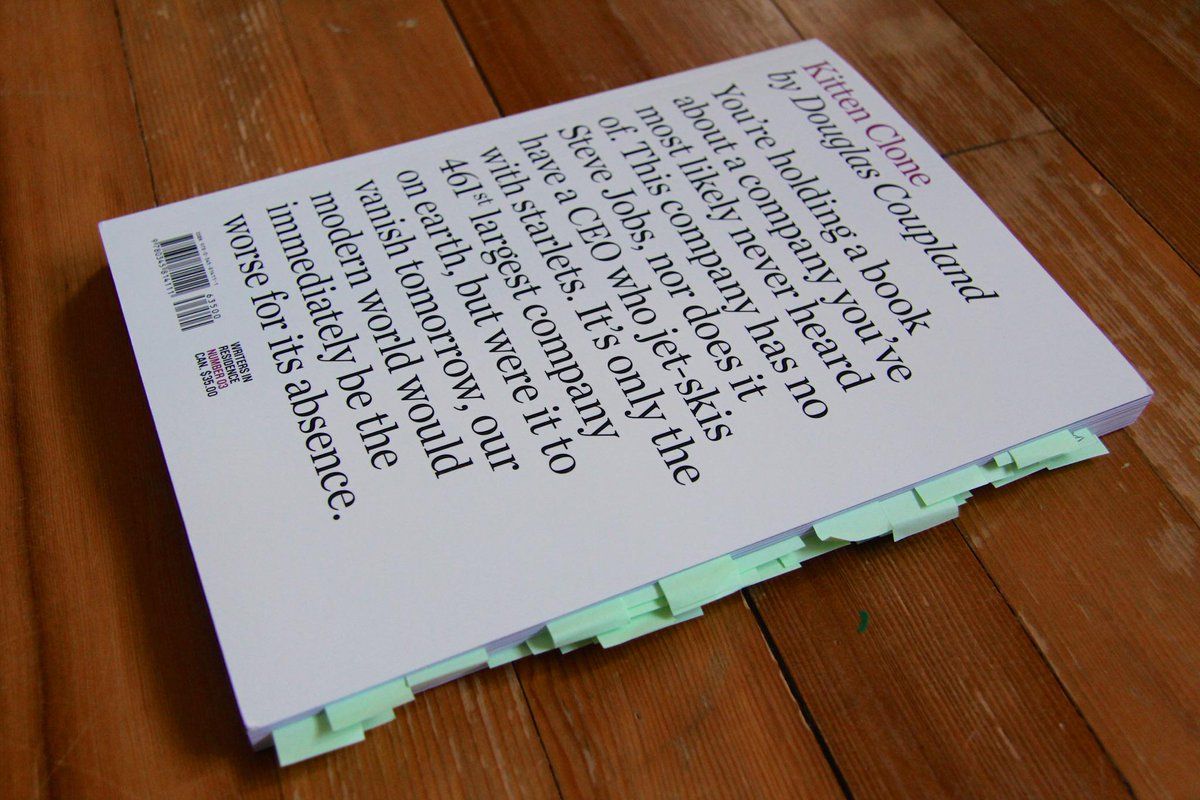 Kitten Clone
by Douglas Coupland
You're holding a book
about a company you've
most likely never heard
of. This company has no
Steve Jobs, nor does it
have a CEO who jet-skis
with starlets. It's only the
461st largest company
on earth, but were it to
vanish tomorrow, our
modern world would
immediately be the
worse for its absence.
63500
WRITERS IN
RESIDENCE
NUMBER 03
CAN. $35.00